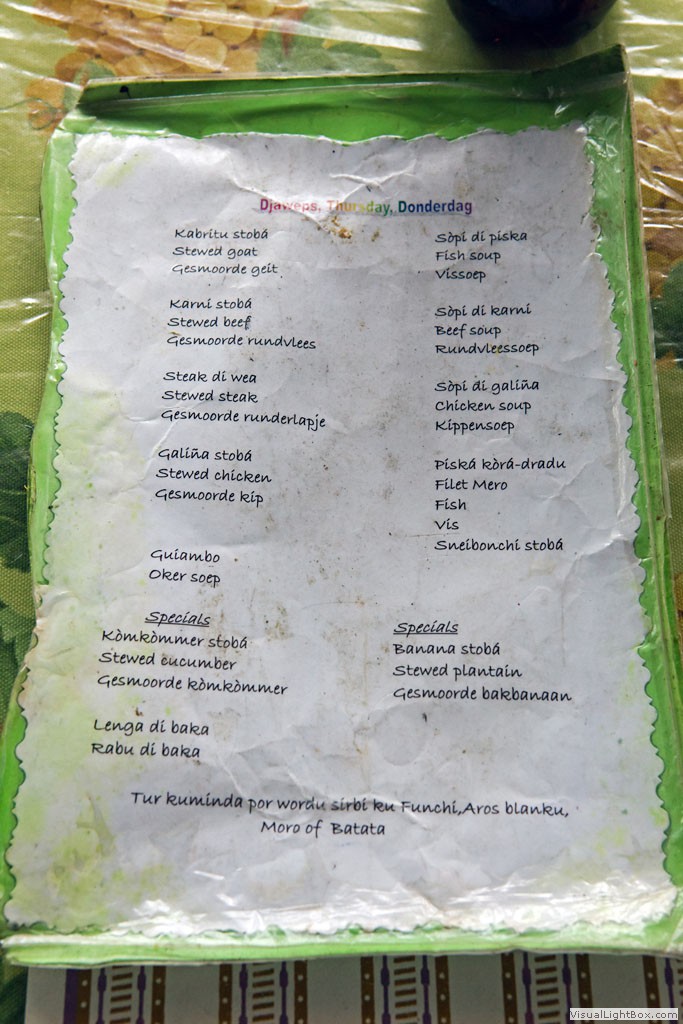 Djaweps, Thursday, Donderdag
Kabritu stobá
Stewed goat
Gesmoorde geit
Karni stobá
Stewed beef
Gesmoorde rundvlees
Steak di wea
Stewed steak
Gesmoorde runderlapje
Galiña stobá
Stewed chicken
Gesmoorde kip
Guiambo
Oker soep
Sòpi di piska
Fish soup
Vissoep
Sòpi di karni
Beef soup
Rundvleessoep
Sòpi di galiña
Chicken soup
Kippensoep
Piská kòrá-dradu
Filet Mero
Fish
Vis
Sneibonchi stobá
Specials
Kòmkòmmer stobá
Stewed cucumber
Gesmoorde kòmkòmmer
Lenga di baka
Rabu di baka
Specials
Banana stobá
Stewed plantain
Gesmoorde bakbanaan
Tur kuminda por wordu sirbi ku Funchi,Aros blanku,
Moro of Batata
VisualLightBox.com